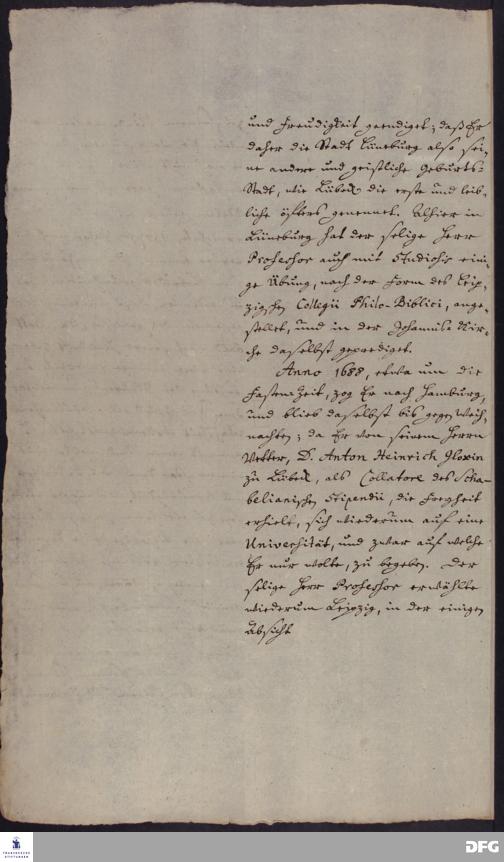 und Freudigkeit geendiget; daß Er
daher die Stadt Lüneburg also sei-
ne andere und geistliche Geburts-
Stadt, wie Lübeck die erste und leib-
liche öfters genennet. Alhier in
Lüneburg hat der selige Herr
Professor auch mit Studiosis eini-
ge Übung, nach der Form des Leip-
zigschen Collegii Philo-Biblici, ange-
stellet, und in der Johannis-Kir-
che daselbst geprediget.
Anno 1688, etwa um die
Fasten-Zeit, zog Er nach Hamburg,
und blieb daselbst bis gegen Weih-
nachten; da Er von seinem Herrn
Vetter, D. Anton Heinrich Gloxin
zu Lübeck, als Collatore des Scha-
belianischen Stipendii, die Freyheit
erhielt, sich wiederum auf eine
Universität, und zwar auf welche
Er nur wolte, zu begeben. Der
selige Herr Professor erwählte
wiederum Leipzig, in der einigen
Absicht
FRANCKESCHE
STIFTUNGEN
DFG